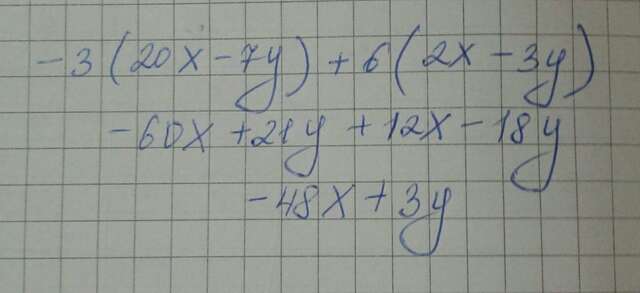 -3(20x-7y)+6(2x-3y)
-60x+21y+12x-18y
-48x+3y